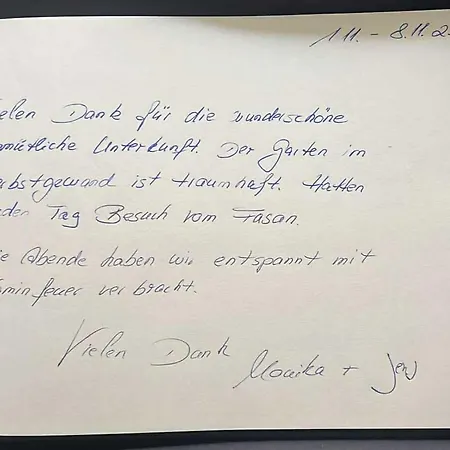 1.11. - 8.11.2
elen Dank für die wunderschöne
mütliche Unterkunft. Der Garten im
rbstgewand ist traumhaft. Hatten
den Tag Besuch vom Fasan.
ie Abende haben wir entspannt mit
min feuer verbracht.
Vielen Dank
Monika + Jens